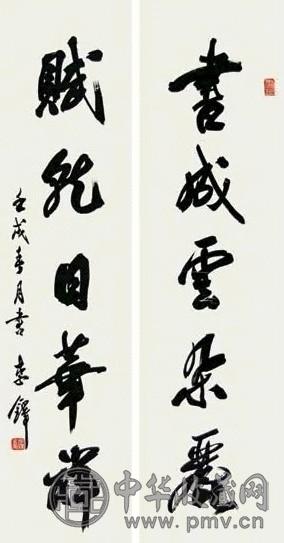 書成雲朵麗
賦就日華
壬戌春月書 李鐸
中华收藏网
www.pmv.cn